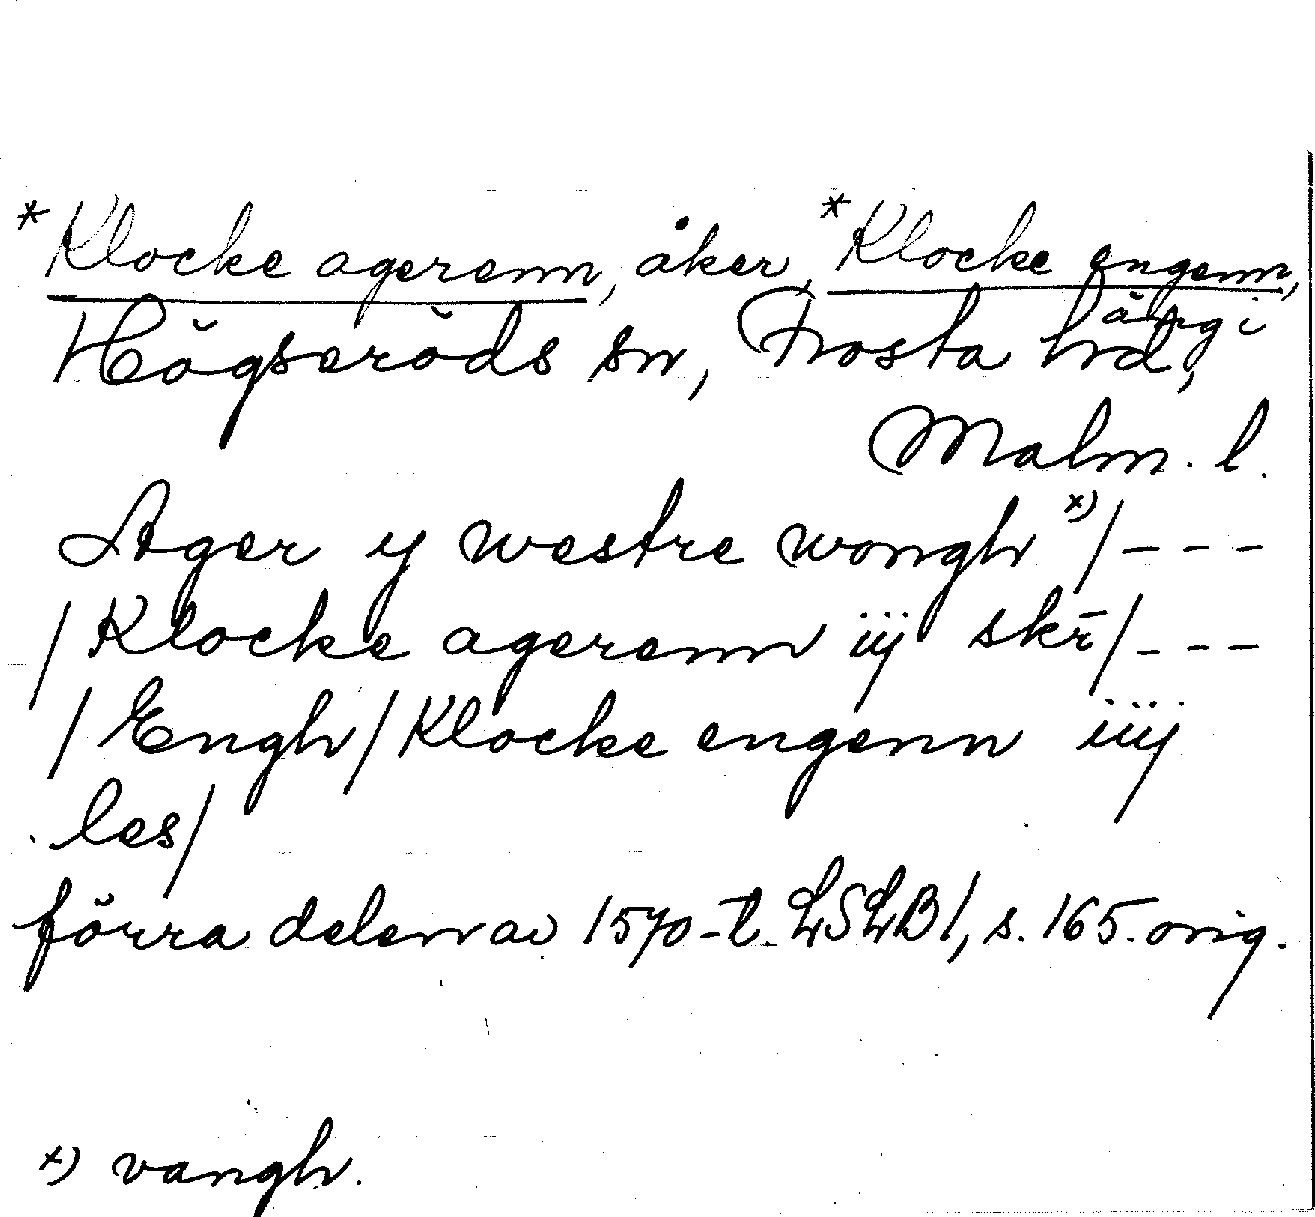 *Klocke agerenn, åker, *Klocke engenn,
äng i
Högseröds sn, Frosta hd,
Malm. l.
Ager y westre wongh x)/---
/Klocke agerenn iij skr̄/---
/Engh/Klocke engenn iiij
les/
förra delen av 1570-t. LSLB1, s. 165. orig.
x) vangh.